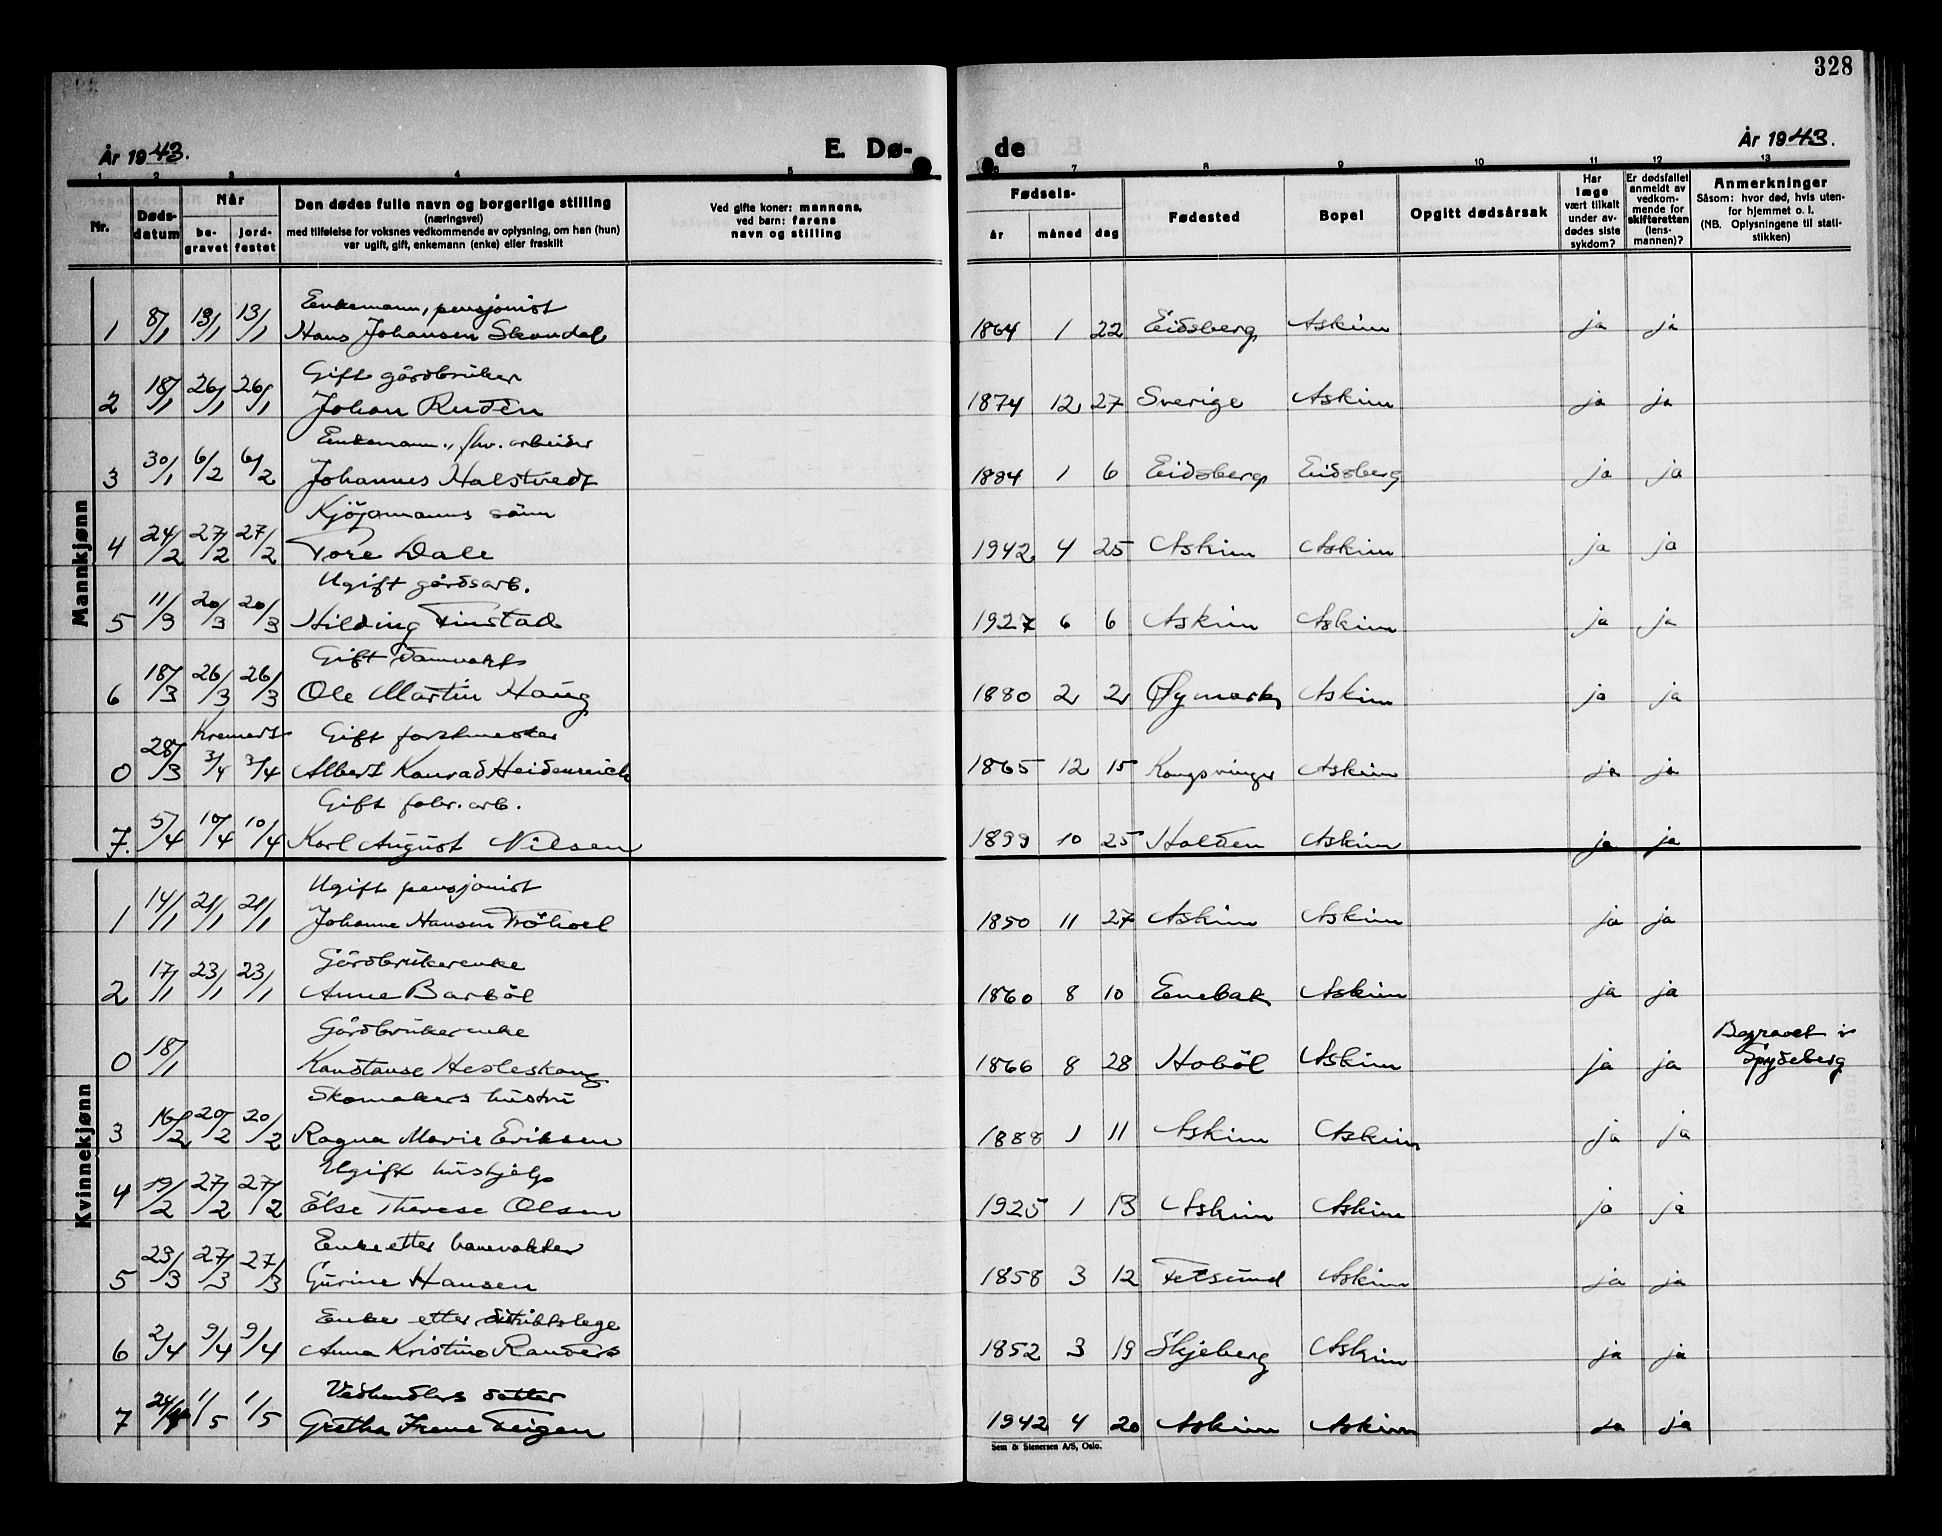 328
År 1943.
E. Dø-
de
År 1943.
1 2 3 4 5 6 7 8 9 10 11 12 13
Nr.
Døds-
datum
Når
be-
gravet
jord-
festet
Den dødes fulle navn og borgerlige stilling
(næringsvei)
med tilføielse for voksnes vedkommende av oplysning, om han (hun)
var ugift, gift, enkemann (enke) eller fraskilt
Ved gifte koner: mannens,
ved barn: farens
navn og stilling
Fødsels-
år måned dag
Fødested
Bopel
Opgitt dødsårsak
Har
læge
vært tilkalt
under av-
dødes siste
sykdom?
Er dødsfallet
anmeldt av
vedkom-
mende for
skifteretten
(lens-
mannen)?
Anmerkninger
Såsom: hvor død, hvis uten-
for hjemmet o. l.
(NB. Oplysningene til stati-
stikken)
Mannkjønn
Enkemann, pensjonist
1 8/1 13/1 13/1 Hans Johansen Skandal 1864 1 22 Eidsberg Askim ja ja
Gift gårdbruker
2 18/1 26/1 26/1 Johan Rudèn 1874 12 27 Sverige Askim ja ja
Enkemann, fhv. arbeider
3 30/1 6/2 6/2 Johannes Halstvedt 1884 1 6 Eidsberg Eidsberg ja ja
Kjöpmanns sönn
4 24/2 27/2 27/2 Tore Dale 1942 4 25 Askim Askim ja ja
Ugift gårdsarb.
5 11/3 20/3 20/3 Hilding Finstad 1927 6 6 Askim Askim ja ja
Gift damvakt
6 18/3 26/3 26/3 Ole Martin Haug 1880 2 2 Øymark Askim ja ja
Kremert Gift forstmester
0 28/3 3/4 3/4 Albert Konrad Heidenreich 1865 12 15 Kongsvinger Askim ja ja
Gift fabr. arb.
7. 5/4 10/4 10/4 Karl August Nilsen 1899 10 25 Halden Askim ja ja
Kvinnekjønn
Ugift pensjonist
1 14/1 21/1 21/1 Johanne Hansen Fröhoel 1850 11 27 Askim Askim ja ja
Gårdbrukerenke
2 17/1 23/1 23/1 Anne Barböl 1860 8 10 Enebak Askim ja ja
Gårdbrukerenke Begravet i
0 18/1 Konstanse Hesleskaug 1866 8 28 Hoböl Askim ja ja Spydeberg
Skomakers hustru
3 16/2 20/2 20/2 Ragna Marie Eriksen 1888 1 11 Askim Askim ja ja
Ugift hushjelp
4 19/2 27/2 27/2 Else Therese Olsen 1925 1 13 Askim Askim ja ja
Enke etter banevokter
5 23/3 27/3 27/3 Gurine Hansen 1858 3 12 Fetsund Askim ja ja
Enke etter distriktslege
6 2/4 9/4 9/4 Anna Kristine Randers 1852 3 19 Skjeberg Askim ja ja
Vedhandlers datter
7 24/4 1/5 1/5 Gretha Irene Feigen 1942 4 20 Askim Askim ja ja
Sem & Stenersen A/S, Oslo.